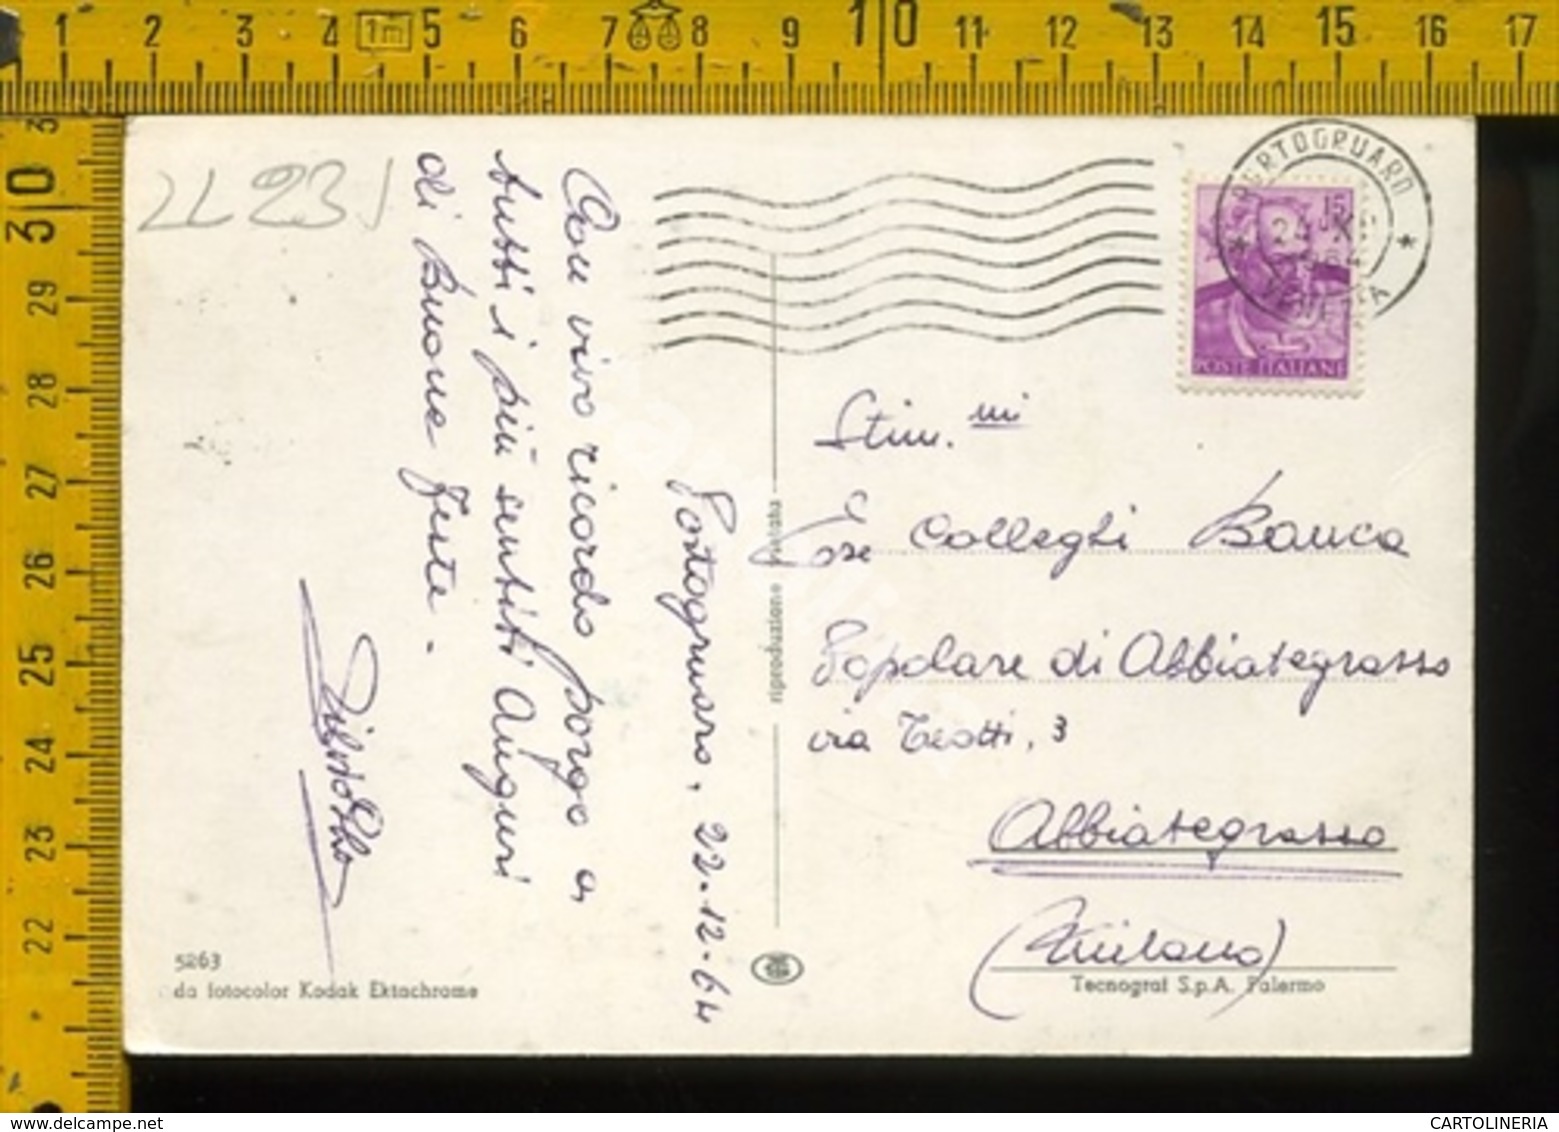 1 2 3 4 1m 5 6 7 8 9 10 11 12 13 14 15 16 17
3
30
29
28
27
26
25
24
23
22
LL 23
Portogruaro, 22.12.64
Con vivo ricordo porgo a
tutti i più sentiti Auguri
di Buone Feste.
PORTOGRUARO
VENEZIA
15
POSTE ITALIANE
Stim.mi
Colleghi Banca
Popolare di Abbiategrasso
via Teotti, 3
Abbiategrasso
(Milano)
riproduzione vietata
5263
da fotocolor Kodak Ektachrome
Tecnograf S.p.A. Palermo
CARTOLINERIA